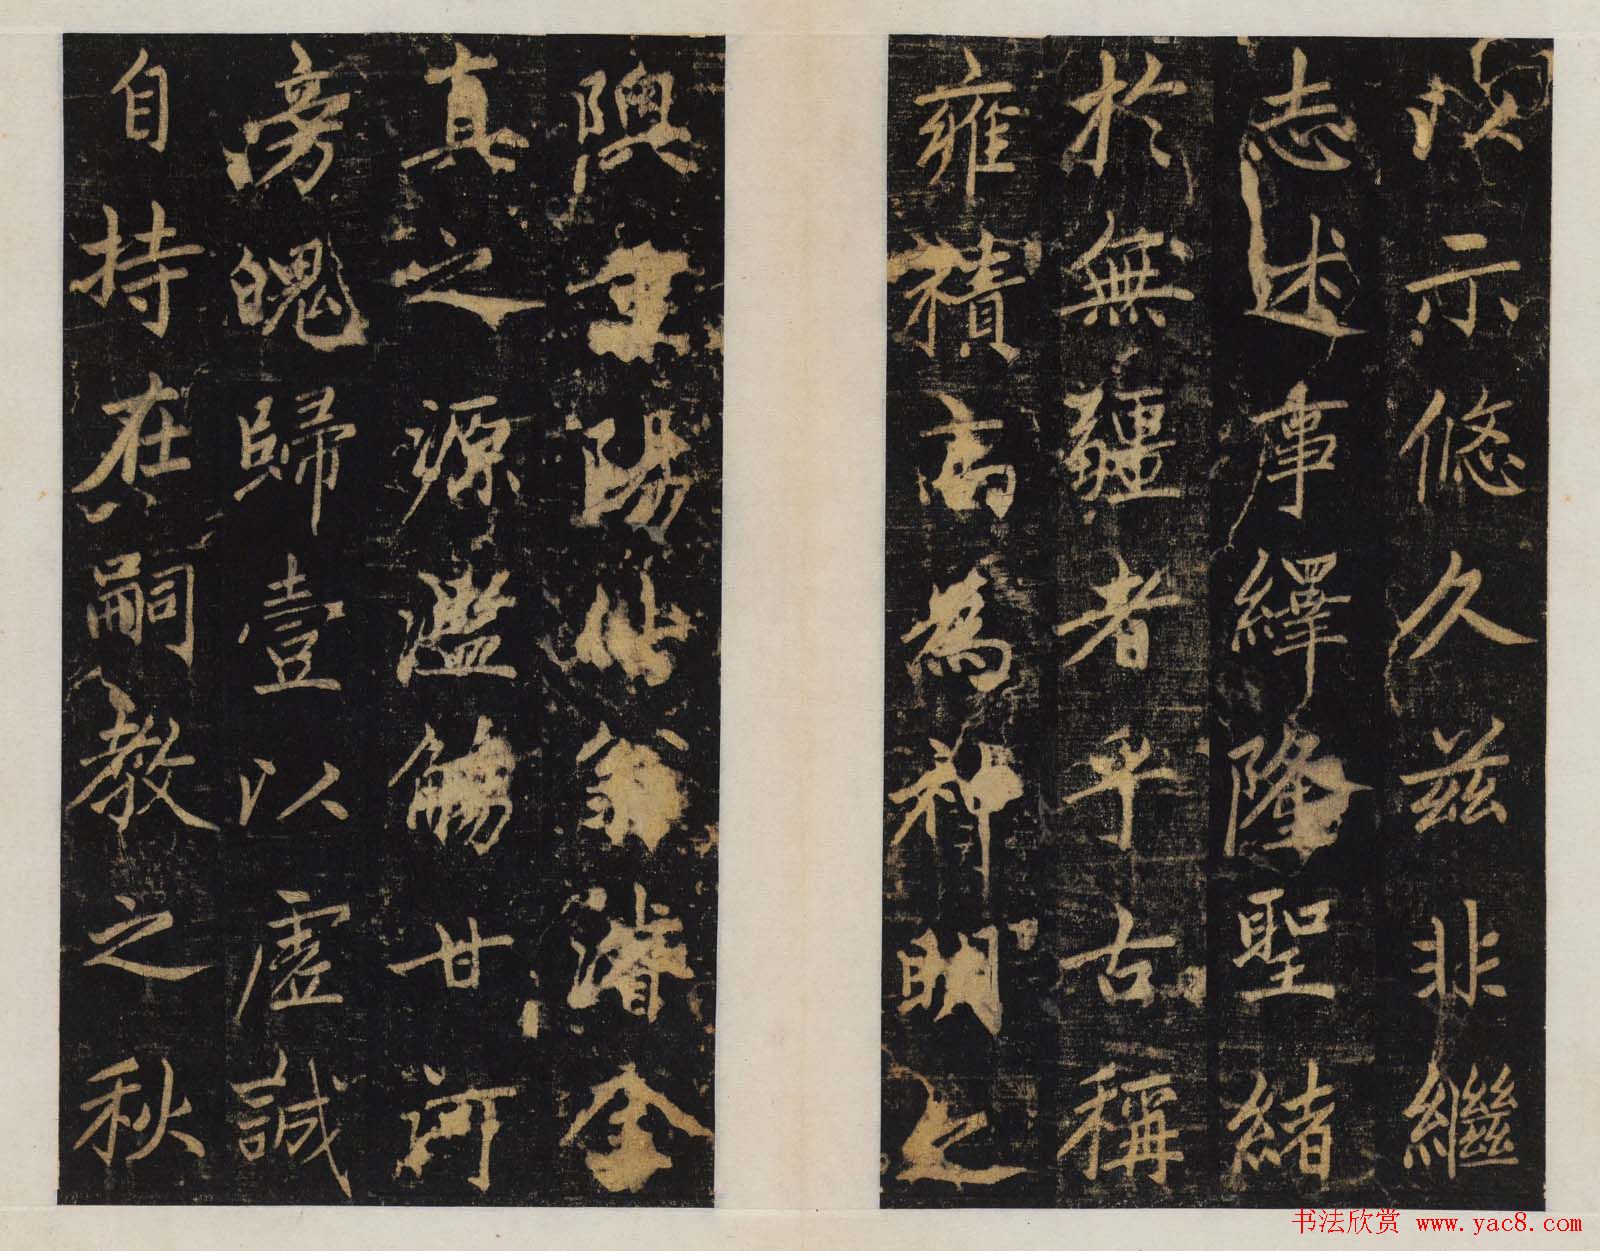 以示悠久兹非繼
志述事繹隆聖緒
於無疆者乎古稱
雍積高為神明之
隩王陽仙翁濬全
真之源濫觴甘河
旁魄歸壹以虛誠
自持在嗣教之秋
书法欣赏 www.yac8.com